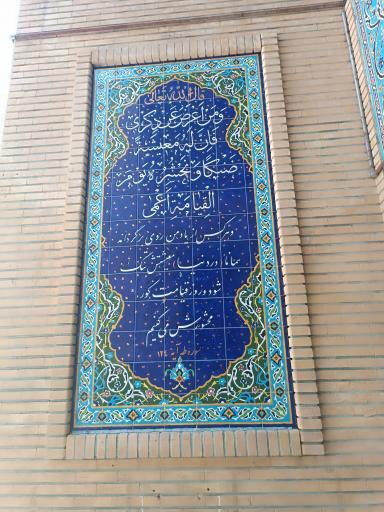 قال الله تعالی
ومن اعرض عن ذکری
فان له معیشة
ضنکا و نحشره یوم
القیامة اعمی
و هرکس از یاد من روی برگرداند
همانا در دنیا معیشتش تنگ
شود و روز قیامت کور
محشورش می کنیم
سوره طه آیه ۱۲۴